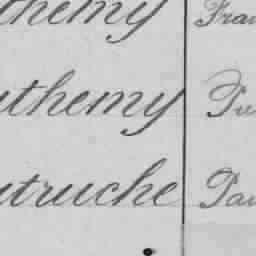 themy Fran
uthemy Pu
utruche Pau